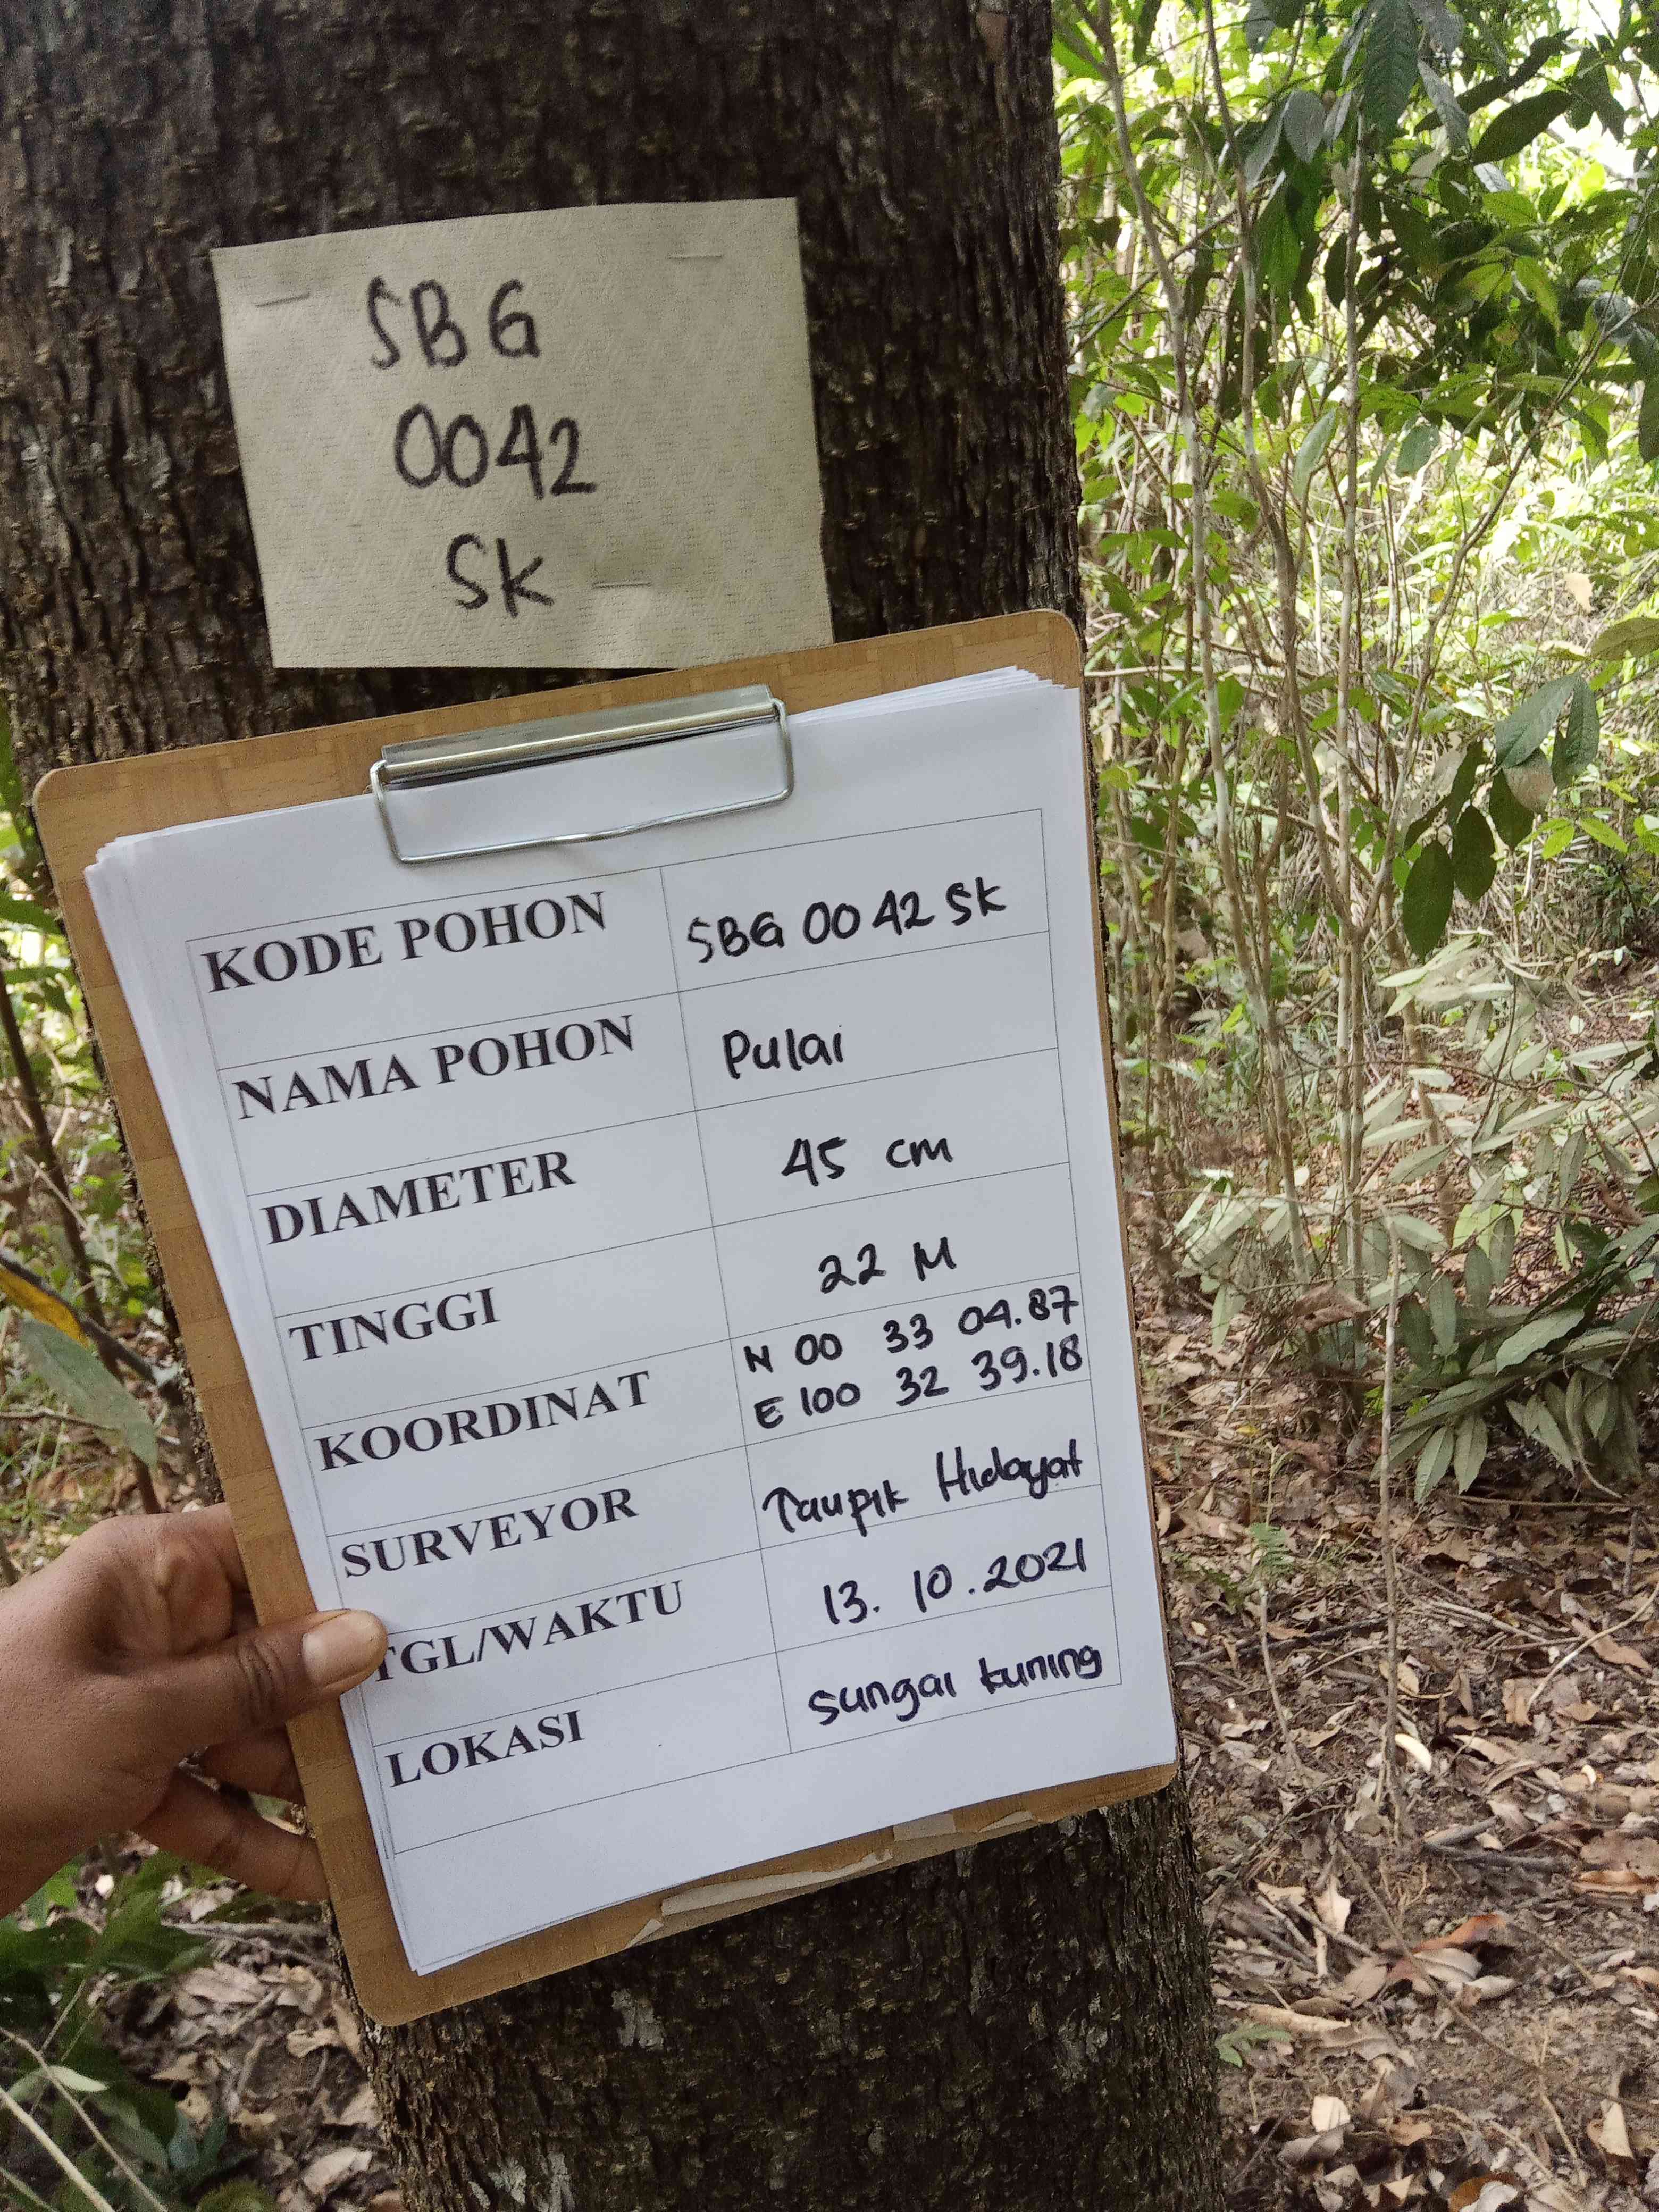 SBG
0042
SK
KODE POHON SBG 0042 SK
NAMA POHON Pulai
DIAMETER 45 cm
TINGGI 22 M
KOORDINAT N 00 33 04.87
E 100 32 39.18
SURVEYOR Taupik Hidayat
TGL/WAKTU 13. 10. 2021
LOKASI Sungai kuning